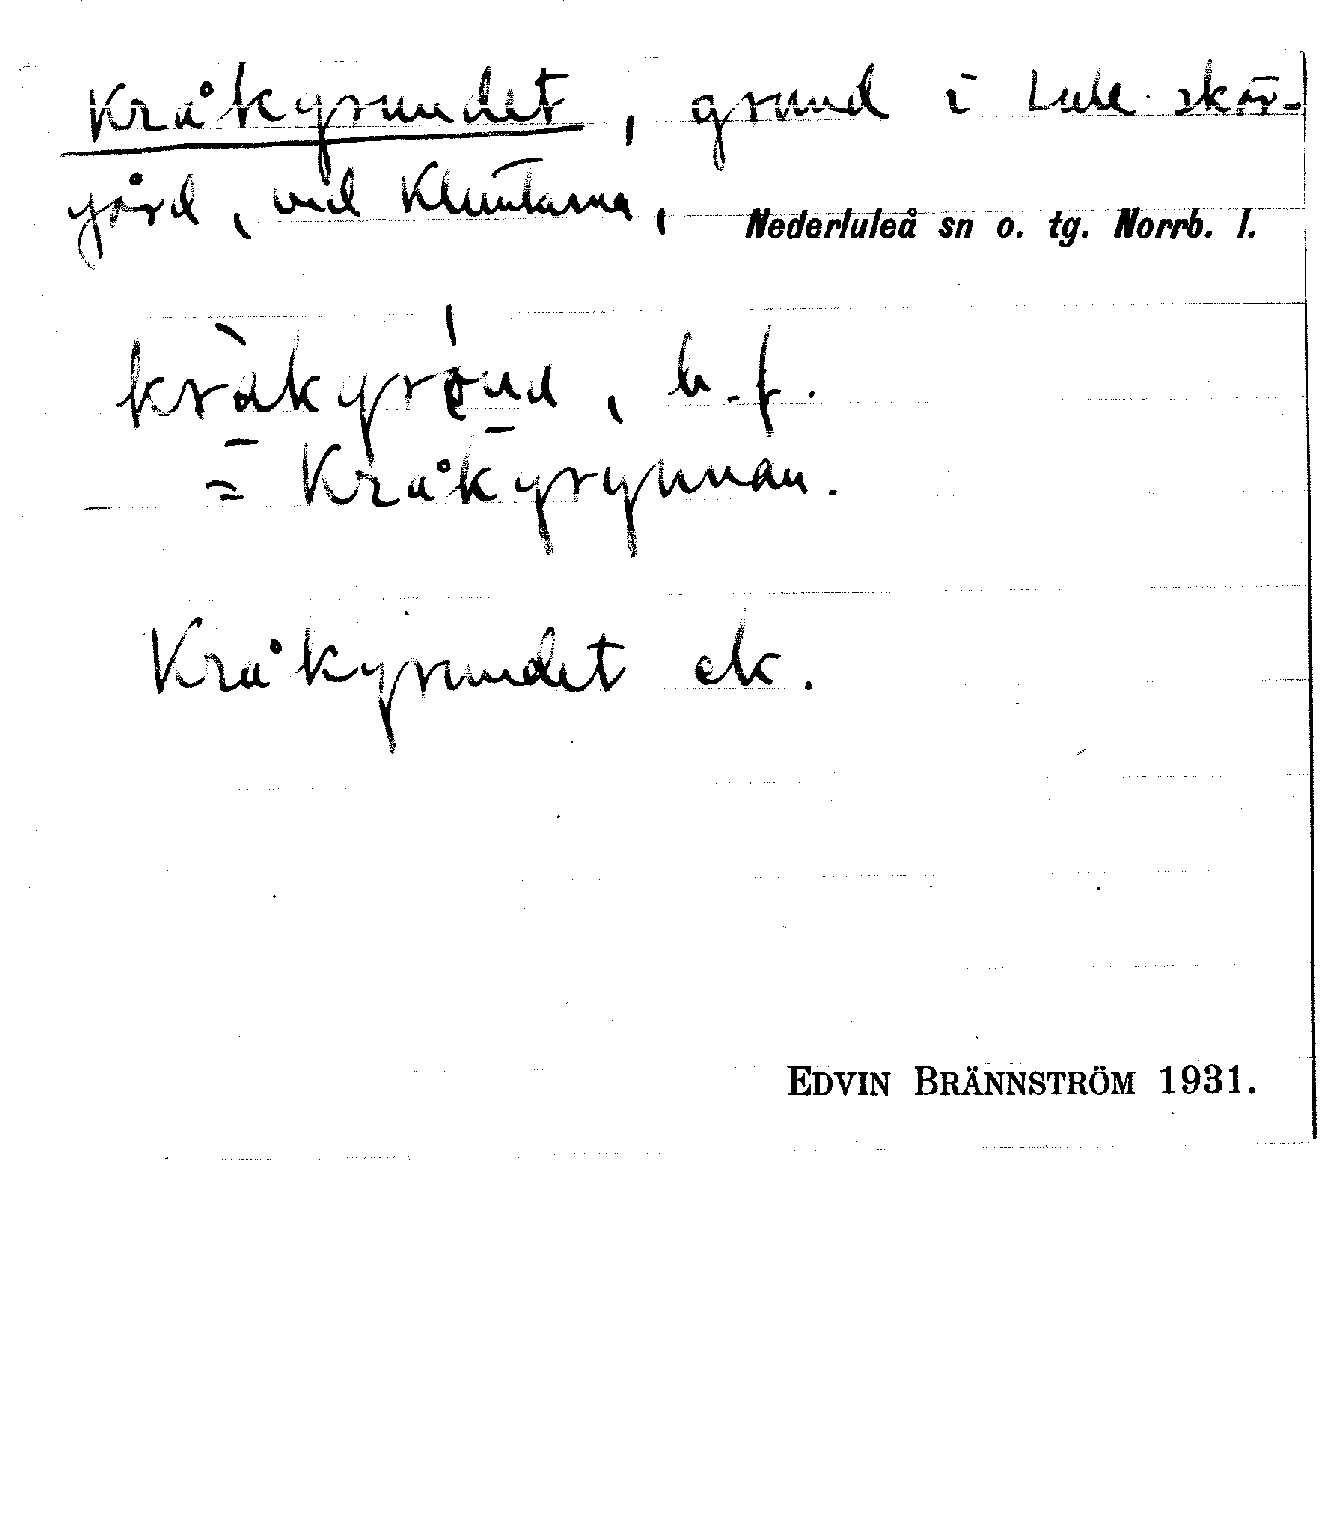 Kråkgrundet, grund i Lule skär-
gård, vid Kluntarna,
Nederluleå sn o. tg. Norrb. l.
kràkgrønd, b.f.
= Kråkgrynnan.
Kråkgrundet ek.
EDVIN BRÄNNSTRÖM 1931.